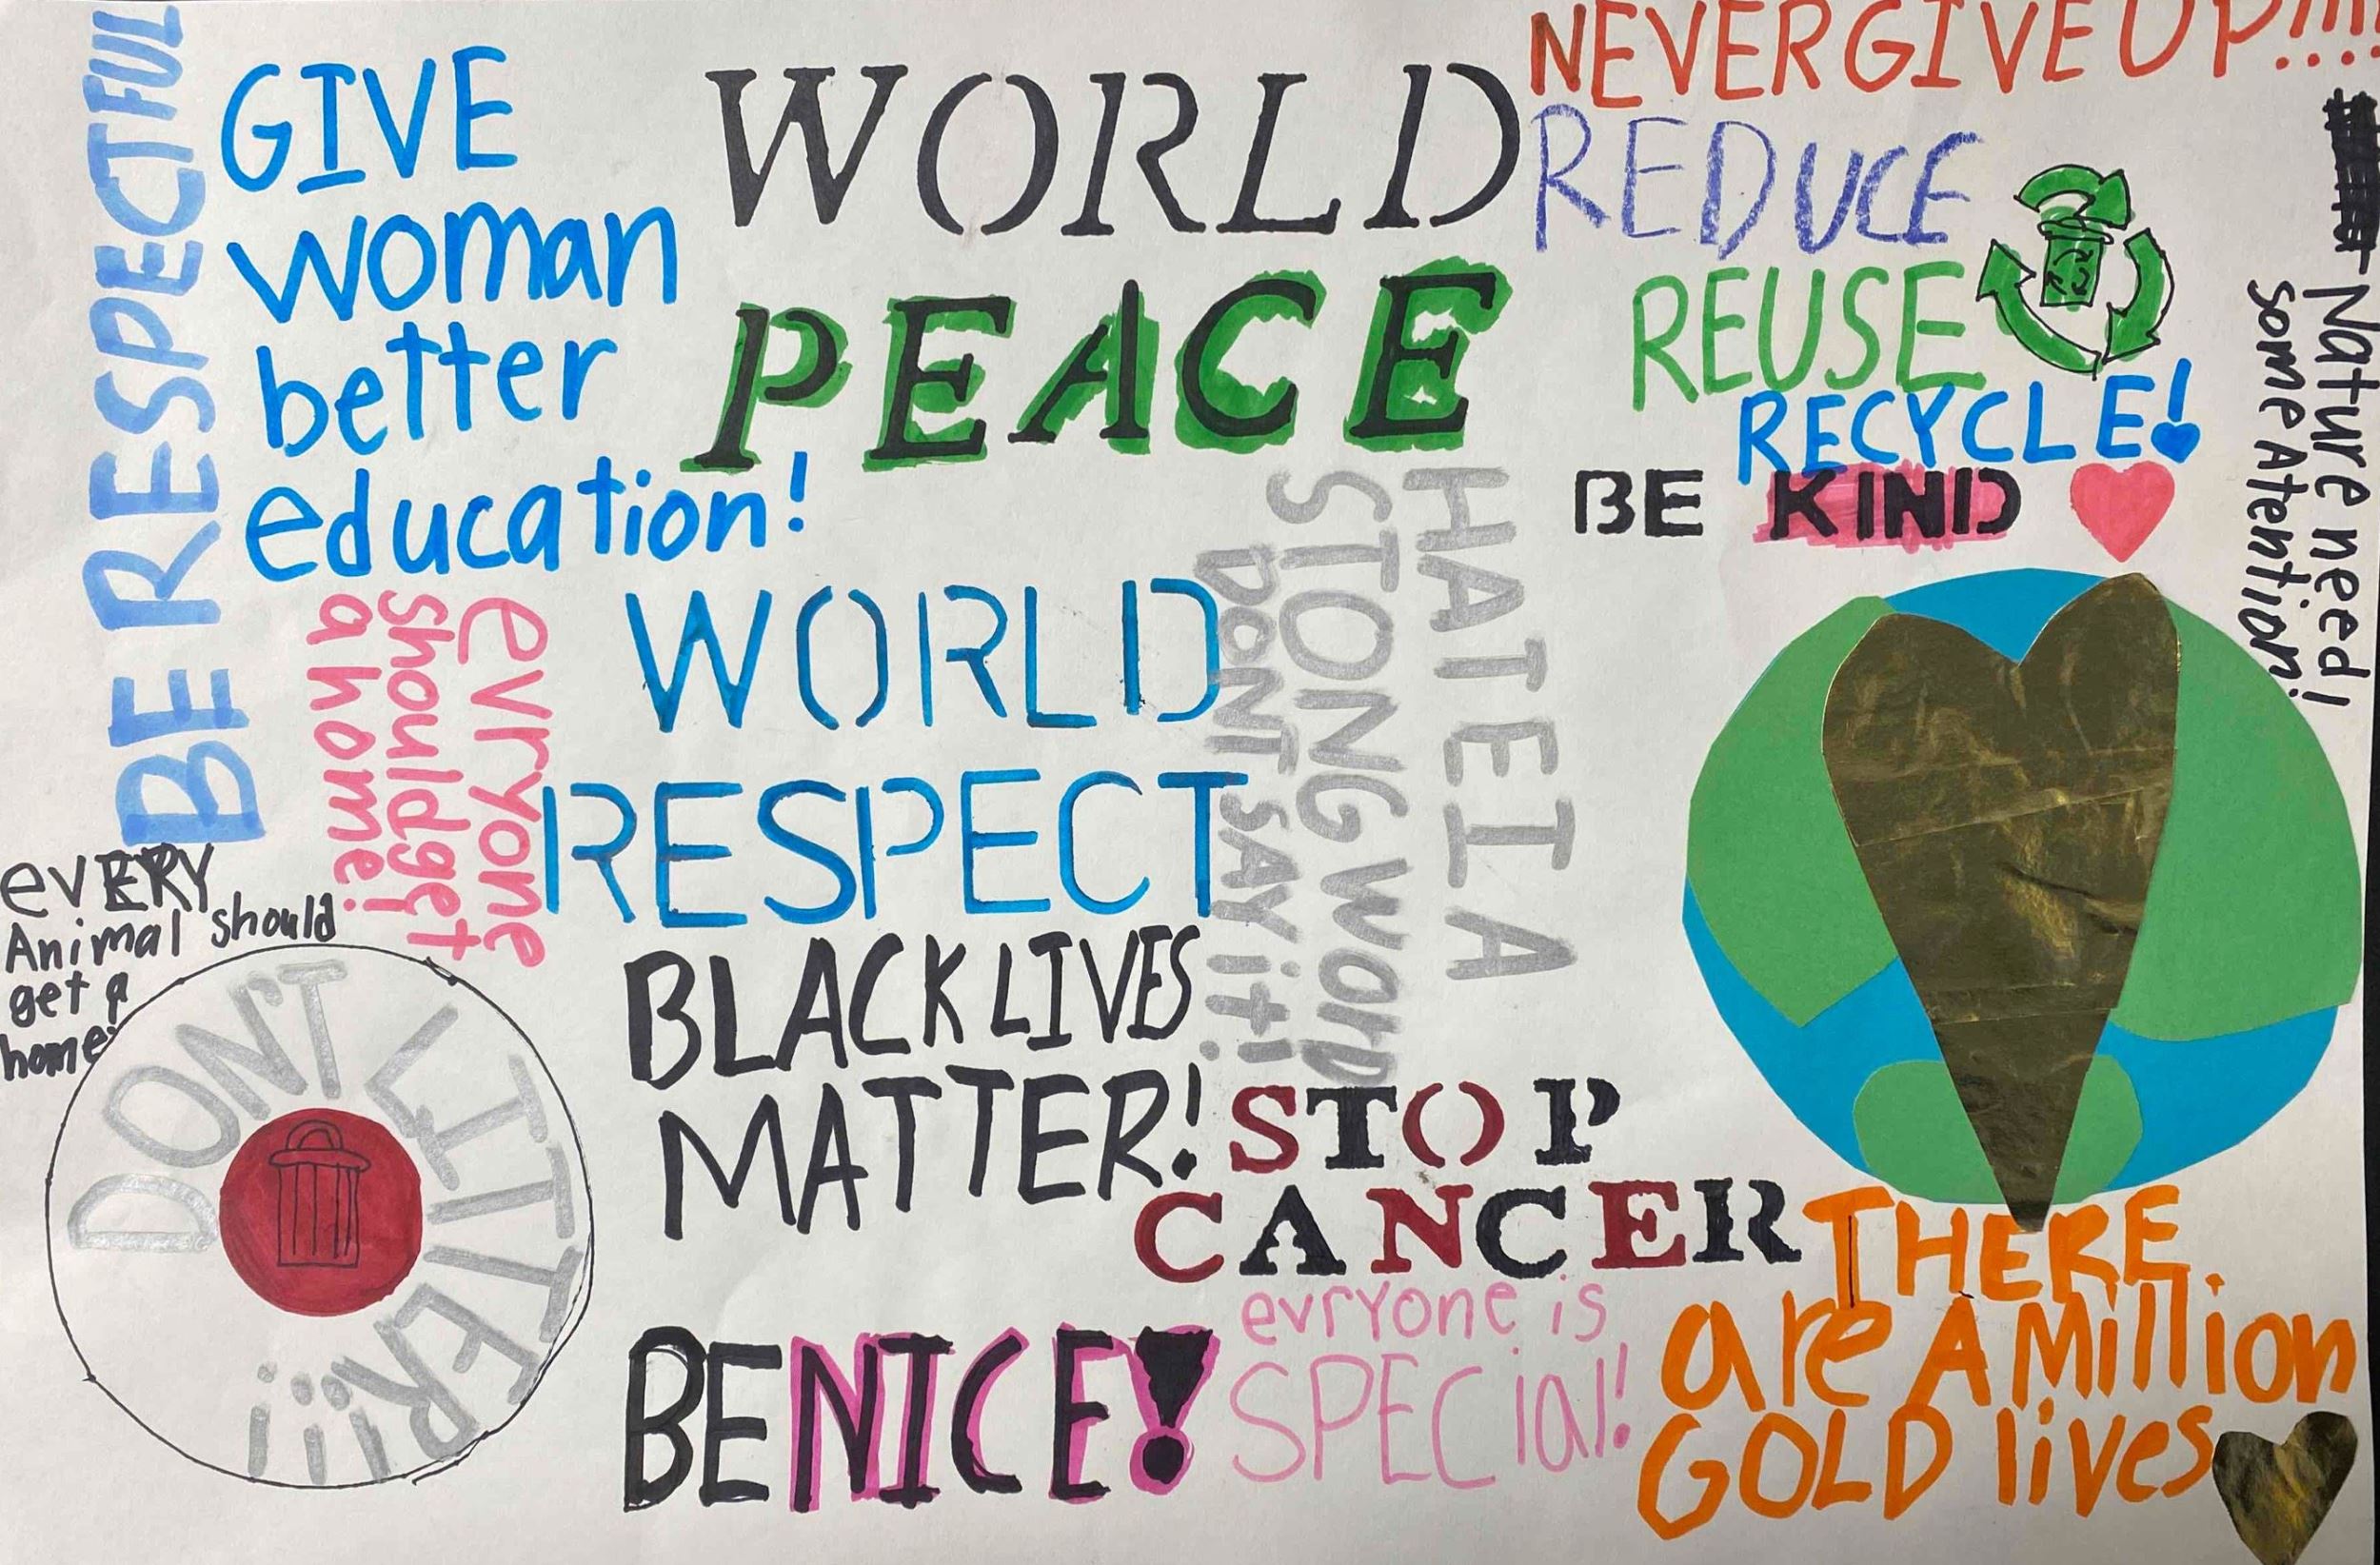 BE RESPECTFUL
GIVE
woman
better
education!
WORLD
PEACE
NEVER GIVE UP!!!!
REDUCE
REUSE
RECYCLE!
BE KIND
Nature need!
some Atention!
HATE I A
STONG WORD
DONT SAY it!
evryone
should get
a home!
WORLD
RESPECT
eVERY
Animal should
get a
home
DON'T LITTER!!!
BLACK LIVES
MATTER!
STOP
CANCER
BE NICE!
evryone is
SPECIal!
THERE
are A Million
GOLD lives